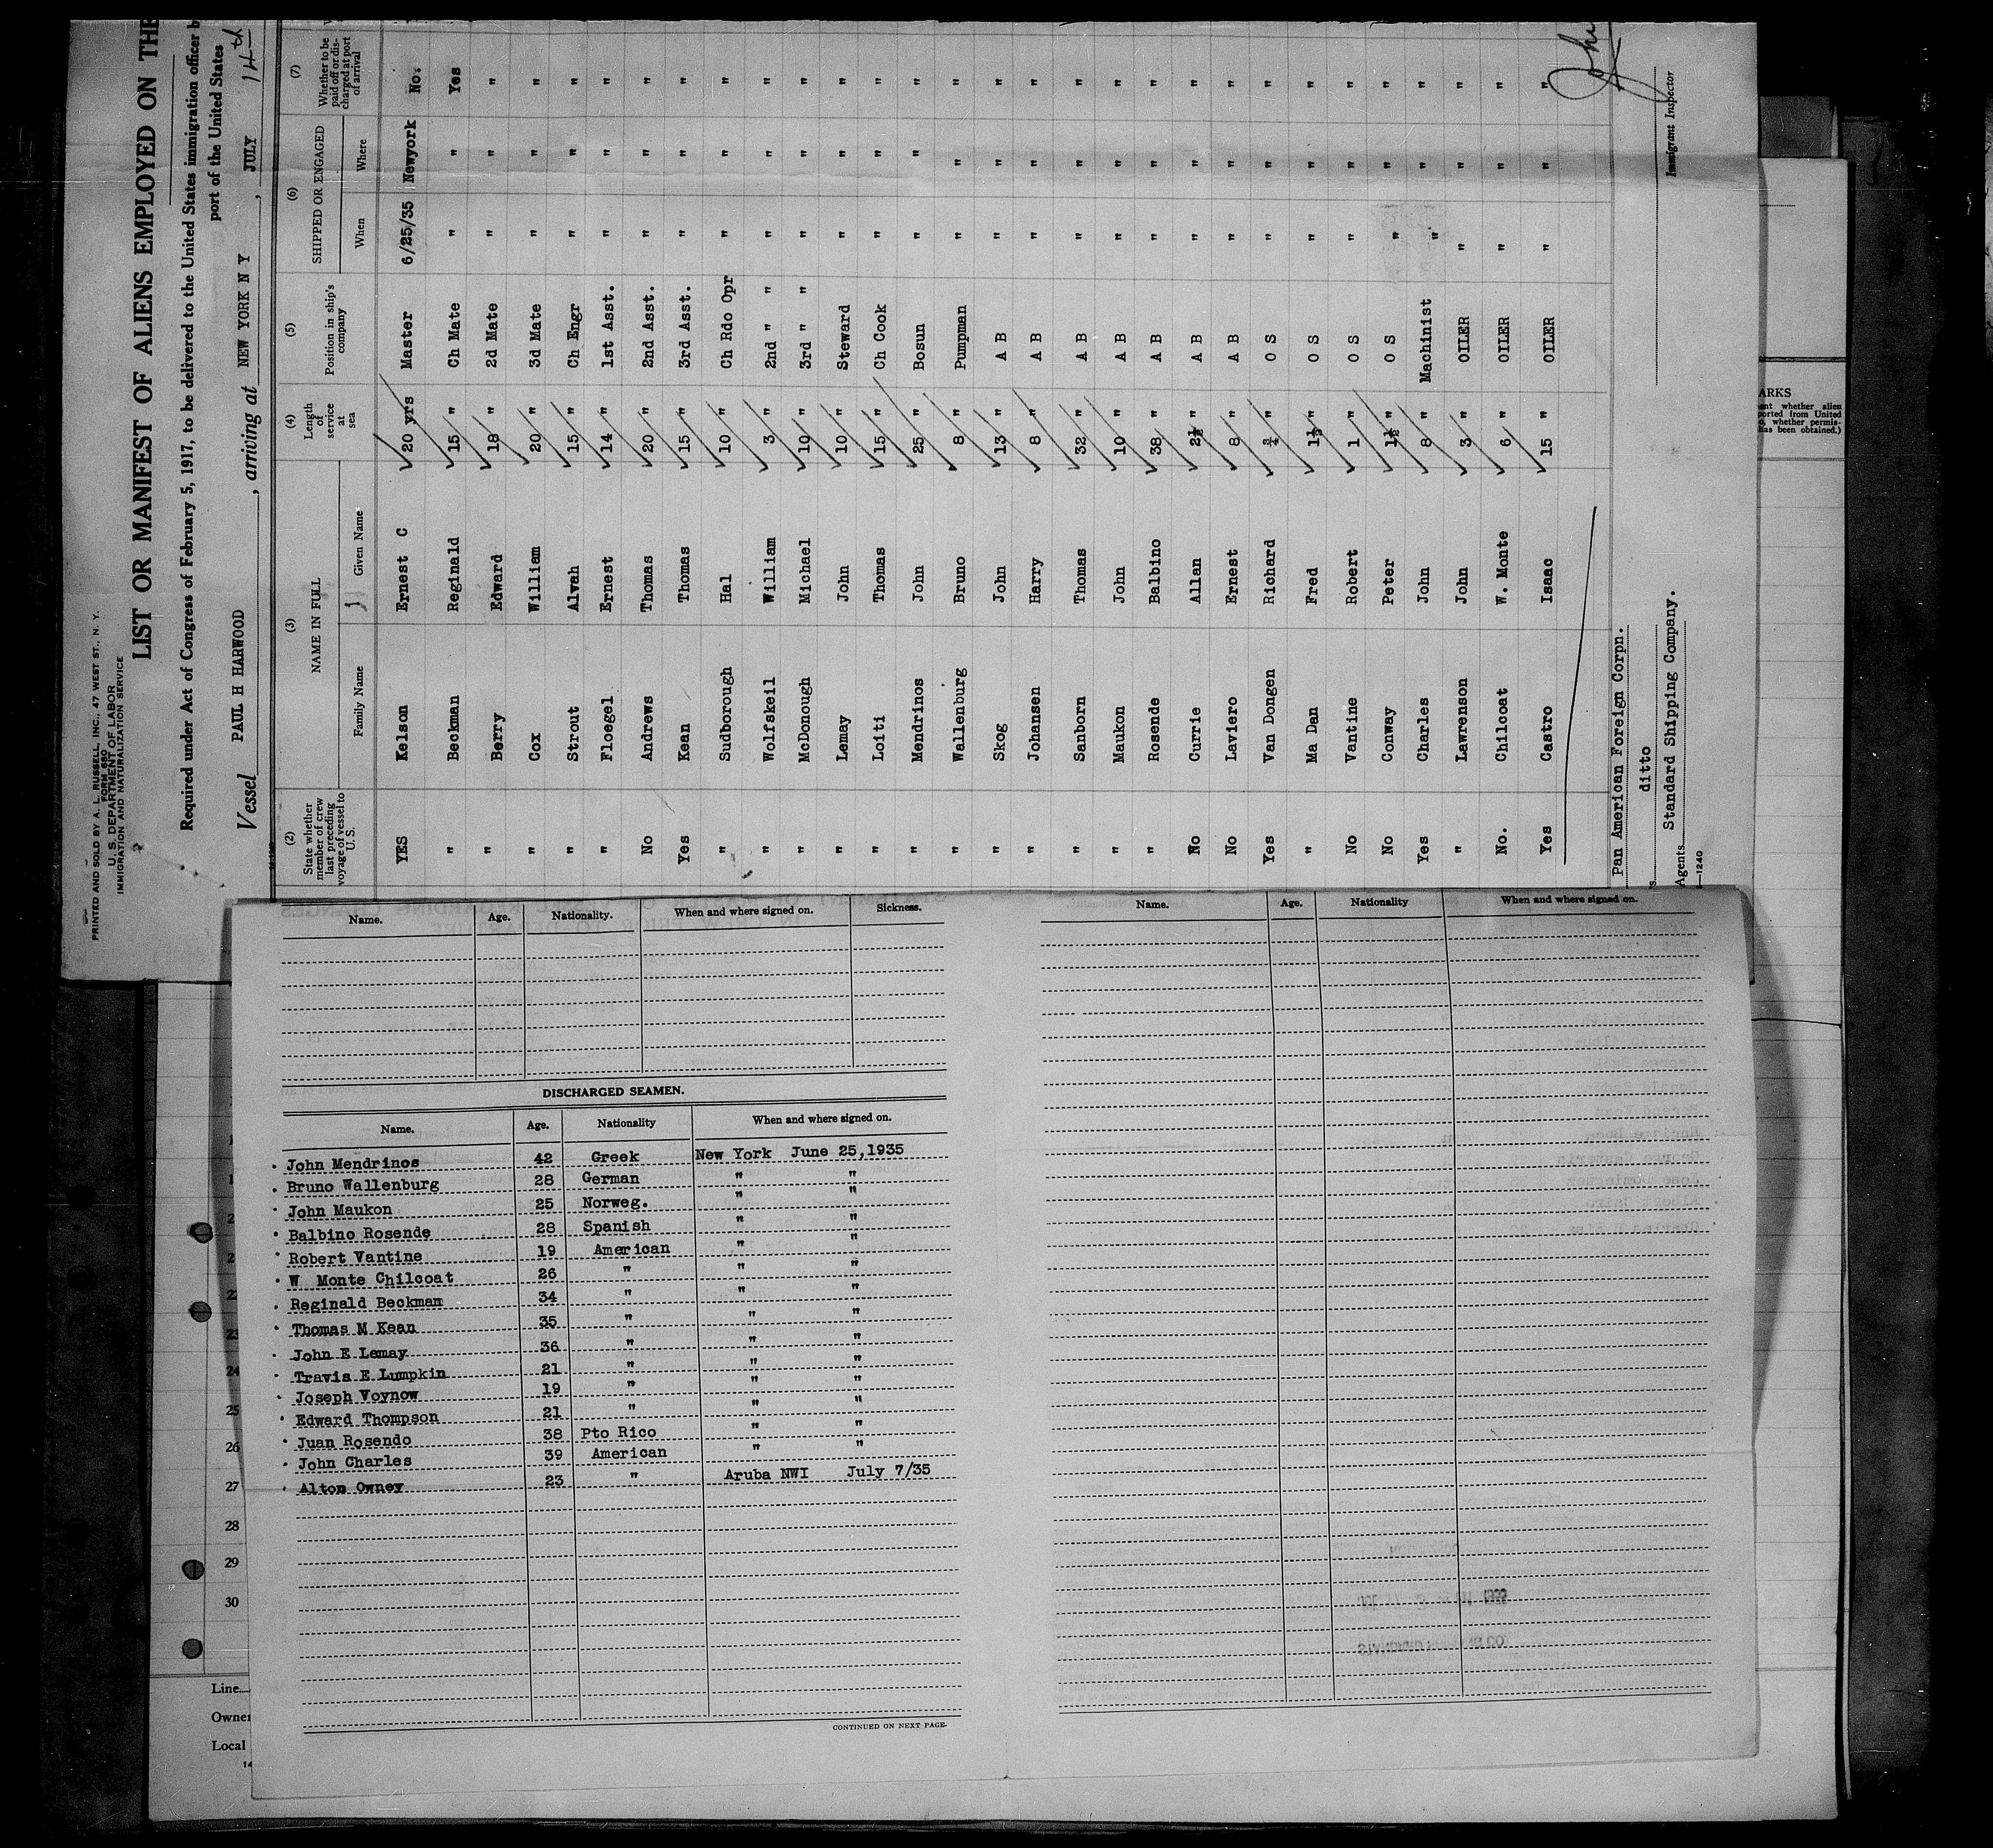 PRINTED AND SOLD BY A. L. RUSSELL, INC., 47 WEST ST., N. Y.
FORM 680
U. S. DEPARTMENT OF LABOR
IMMIGRATION AND NATURALIZATION SERVICE
LIST OR MANIFEST OF ALIENS EMPLOYED ON THE
Required under Act of Congress of February 5, 1917, to be delivered to the United States immigration officer b
port of the United States
Vessel PAUL H HARWOOD, arriving at NEW YORK N Y, JULY 14th
(2) (3) (4) (5) (6) (7)
State whether member of crew last preceding voyage of vessel to U.S. NAME IN FULL Family Name Given Name Length of service at sea Position in ship's company SHIPPED OR ENGAGED When Where Whether to be paid off or discharged at port of arrival
YES Kelson Ernest C 20 yrs Master 6/25/35 Newyork No.
" Beckman Reginald 15 " Ch Mate " " Yes
" Berry Edward 18 " 2d Mate " " "
" Cox William 20 " 3d Mate " " "
" Strout Alvah 15 " Ch Engr " " "
" Floegel Ernest 14 " 1st Asst. " " "
No Andrews Thomas 20 " 2nd Asst. " " "
Yes Kean Thomas 15 " 3rd Asst. " " "
" Sudborough Hal 10 " Ch Rdo Opr " " "
" Wolfskeil William 3 " 2nd " " " " "
" McDonough Michael 10 " 3rd " " " " "
" Lemay John 10 " Steward " " "
" Loiti Thomas 15 " Ch Cook " " "
" Mendrinos John 25 " Bosun " " "
" Wallenburg Bruno 8 " Pumpman " " "
" Skog John 13 " A B " " "
" Johansen Harry 8 " A B " " "
" Sanborn Thomas 32 " A B " " "
" Maukon John 10 " A B " " "
" Rosende Balbino 38 " A B " " "
No Currie Allan 2½ " A B " " "
No Laviero Ernest 8 " A B " " "
Yes Van Dongen Richard ¾ " O S " " "
" Ma Dan Fred 1½ " O S " " "
No Vantine Robert 1 " O S " " "
No Conway Peter 1½ " O S " " "
Yes Charles John 8 " Machinist " " "
" Lawrenson John 3 " OILER " " "
No. Chilcoat W. Monte 6 " OILER " " "
Yes Castro Isaac 15 " OILER " " "
John
Pan American Foreign Corpn.
ditto
Agents Standard Shipping Company.
Immigrant Inspector
—1240
ARKS
ent whether alien
ported from United
o, whether permis-
has been obtained.)
Name. Age. Nationality. When and where signed on. Sickness.
DISCHARGED SEAMEN.
Name. Age. Nationality When and where signed on.
John Mendrinos 42 Greek New York June 25,1935
Bruno Wallenburg 28 German " "
John Maukon 25 Norweg. " "
Balbino Rosende 28 Spanish " "
Robert Vantine 19 American " "
W Monte Chilcoat 26 " " "
Reginald Beckman 34 " " "
Thomas M Kean 35 " " "
John E Lemay 36 " " "
Travis E Lumpkin 21 " " "
Joseph Voynow 19 " " "
Edward Thompson 21 " " "
Juan Rosendo 38 Pto Rico " "
John Charles 39 American " "
Alton Owney 23 " Aruba NWI July 7/35
CONTINUED ON NEXT PAGE.
Name. Age. Nationality When and where signed on.
23
24
25
26
27
28
29
30
Line
Owner
Local
14